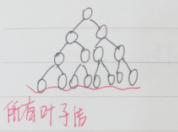 所有叶子结